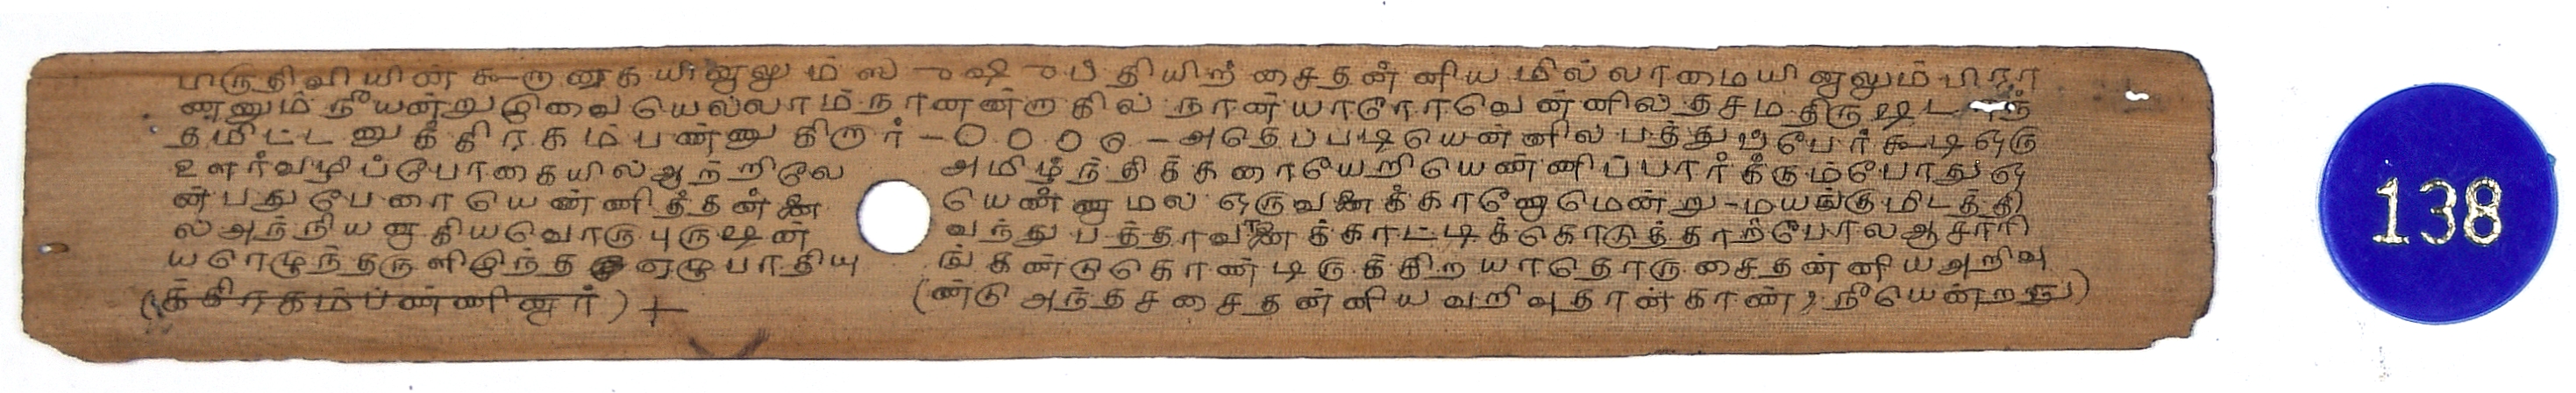 பாருதிவியின் கூறாகயினாலும் ஸுஷுப்தியிற் சைதன்னிய மில்லாமையினாலும் பிரா
ணனும் நீயன்று இவை யெல்லாம் நானன்றாகில் நான் யாரோவென்னில் தசம திருஷடாந்
தமிட்டனுக்கிரகம் பண்ணுகிறார் – அதெப்படியென்னில் பத்துப்பேர் கூடி ஒரு
ஊர்வழிப்போகையில் ஆற்றிலே அமிழ்ந்திக்கரையேறி யெண்ணிப்பார்க்கும்போது ஒ
ன்பதுபேரை யெண்ணித்தன்னை யெண்ணாமல் ஒருவனைக்காணோமென்று – மயங்குமிடத்தி
ல் அந்நியனாகியவொரு புருஷன் வந்து பத்தாவனைக்காட்டிக்கொடுத்தாற்போல ஆசாரி
யரெழுந்தருளியிந்த ஏழுபாதியு ங்கண்டுகொண்டிருக்கிற யாதொரு சைதன்னிய அறிவு
(க்கிரகம்பண்ணினார்) + (ண்டு அந்தச் சைதன்னிய வறிவுதான் காண் நீயென்றநு)
138